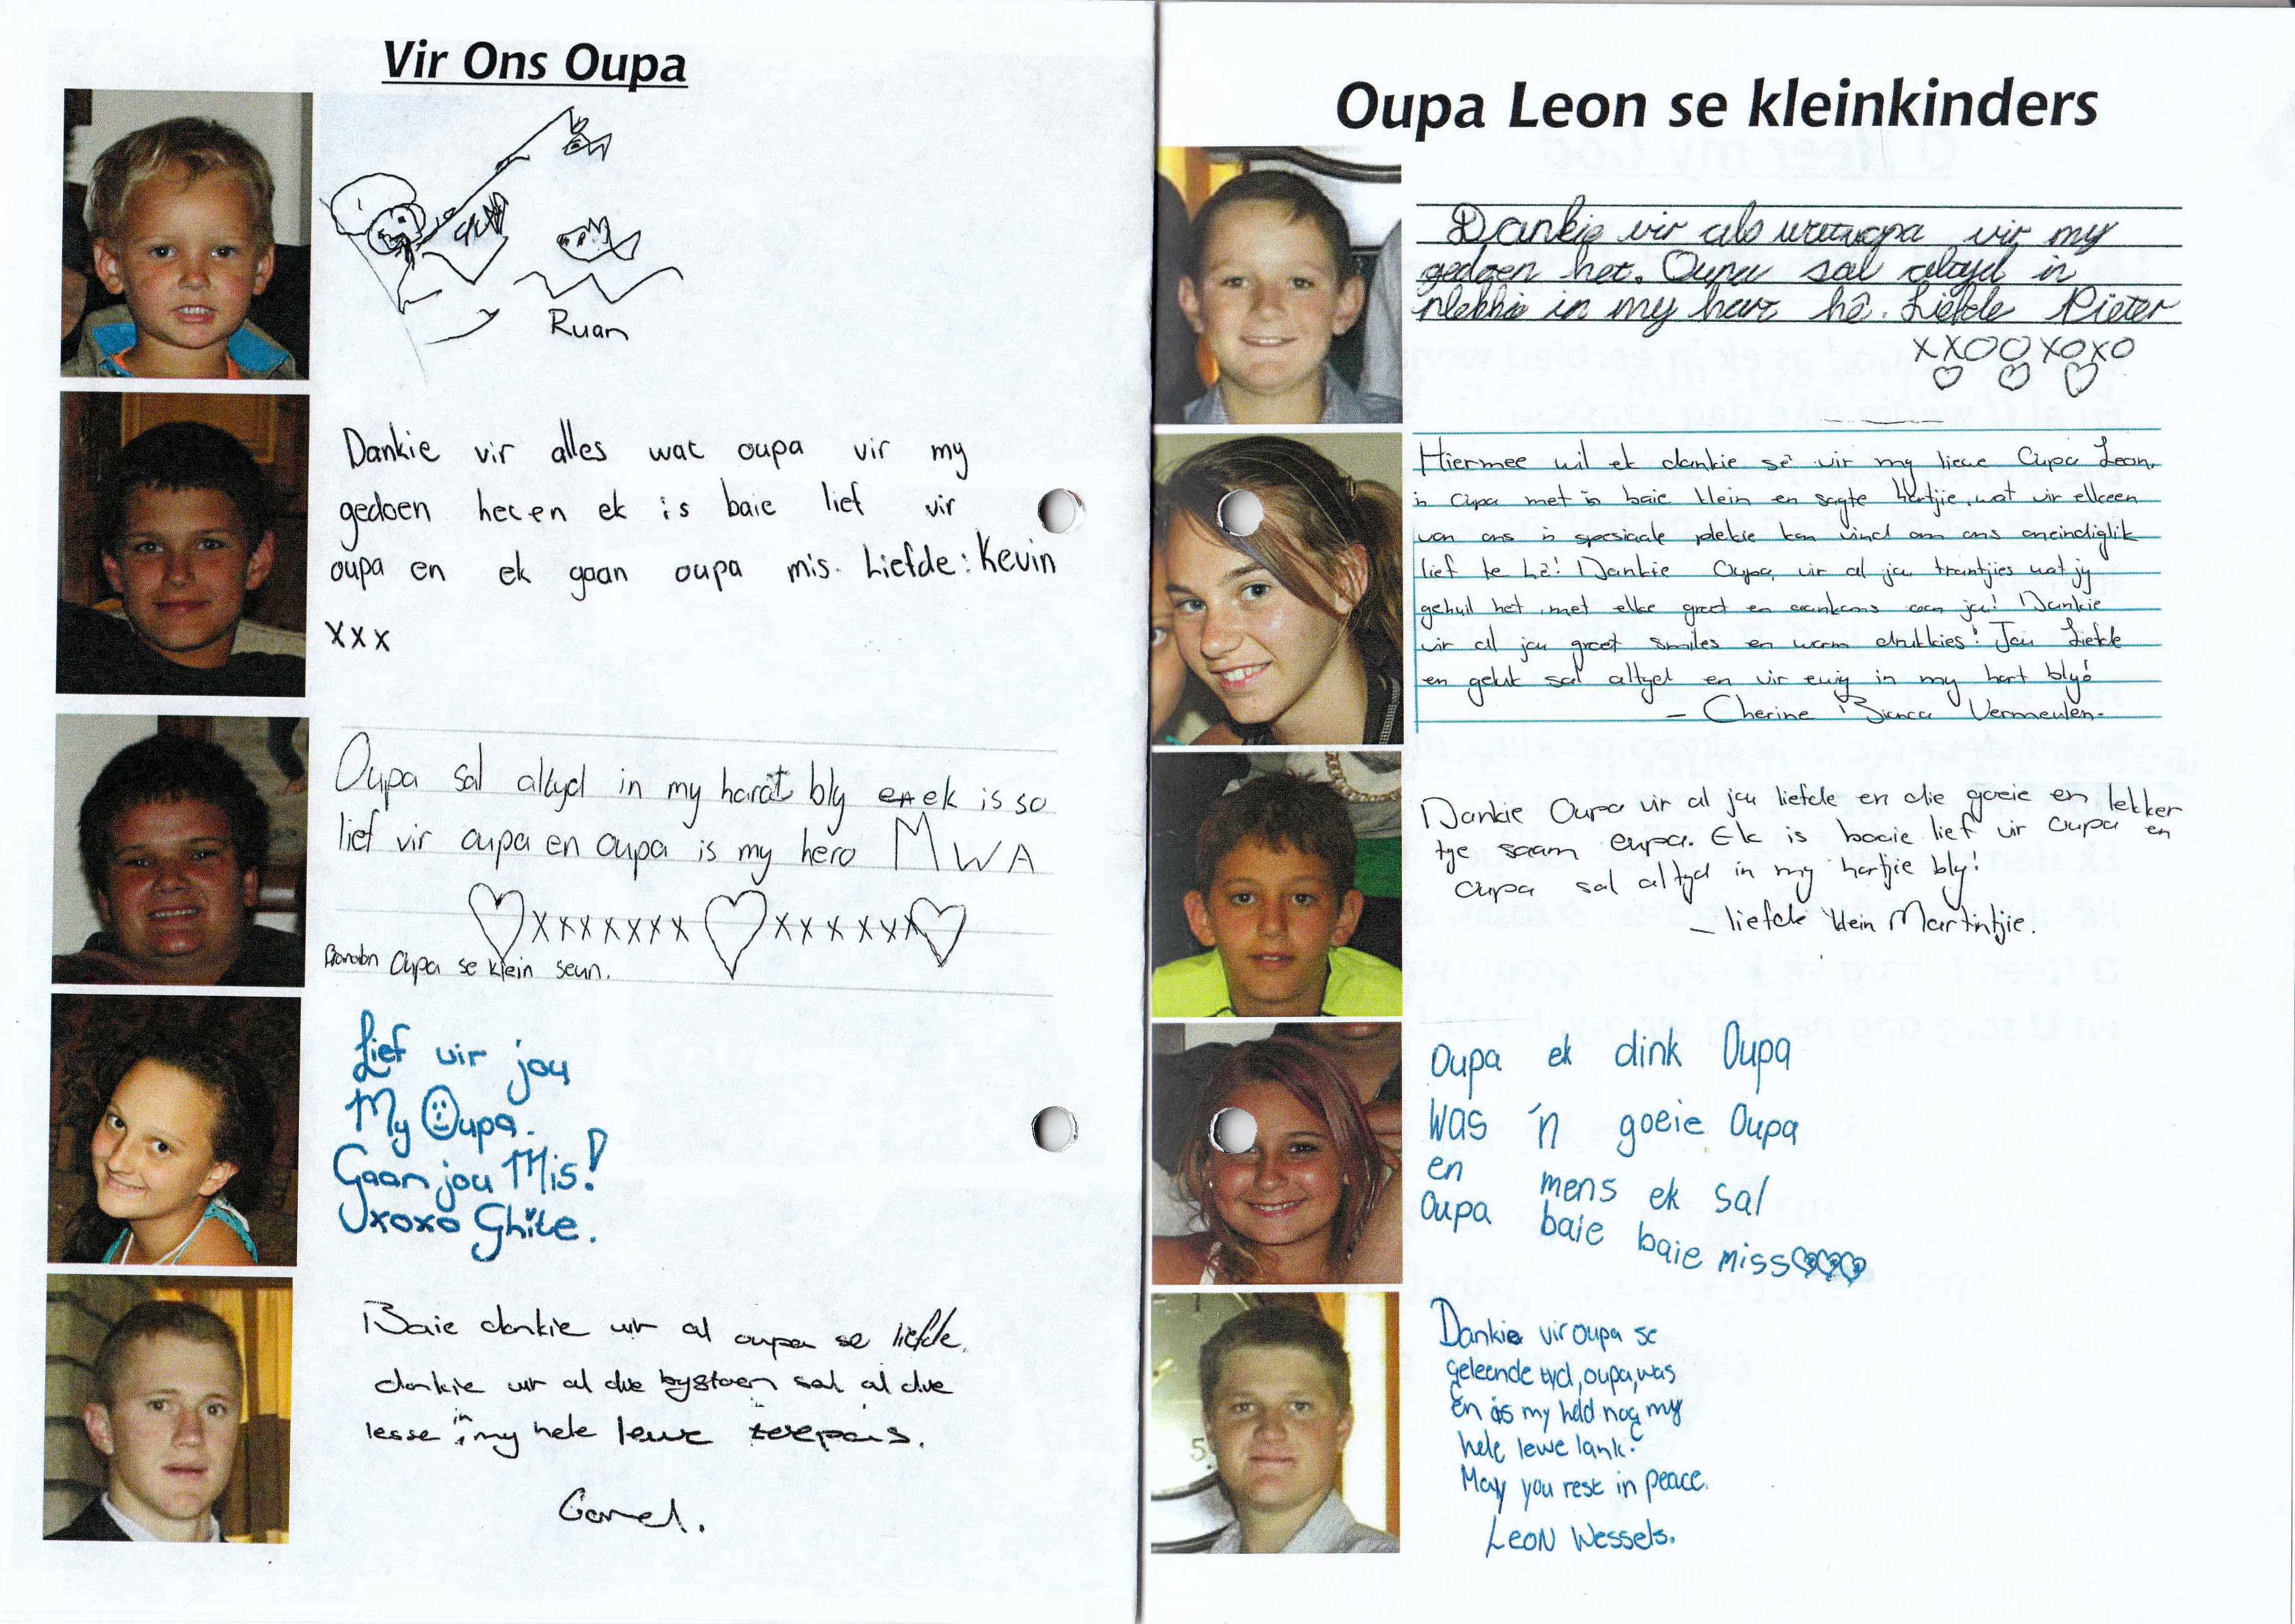 Vir Ons Oupa
Ruan
Dankie vir alles wat oupa vir my
gedoen het en ek is baie lief vir
oupa en ek gaan oupa mis. Liefde: Kevin
xxx
Oupa sal altyd in my harat bly en ek is so
lief vir oupa en oupa is my hero MWA
xxxxxxx xxxxxxx
Oupa se klein seun.
Lief vir jou
My Oupa.
Gaan jou Mis!
xoxo
Baie dankie vir al oupa se liefde.
dankie vir al die bystaen sal al die
lesse in my hele lewe
Oupa Leon se kleinkinders
Dankie vir als wat oupa vir my
gedoen het. Oupa sal altyd 'n
plekkie in my hart hê. Liefde Pieter
xxooxoxo
Hiermee wil ek dankie sê vir my liewe Oupa Leon,
'n Oupa met 'n baie klein en sagte hartjie, wat vir elkeen
van ons 'n spesiaale plekie kon vind om ons oneindiglik
lief te hê! Dankie Oupa, vir al jou traantjies wat jy
gehuil het, met elke groet en aankoms aan jou! Dankie
vir al jou groot smiles en warm drukkies! Jou Liefde
en geluk sal altyd en vir ewig in my hart bly!
- Cherine Bianca Vermeulen-
Dankie Oupa vir al jou liefde en die goeie en lekker
tye saam oupa. Ek is baaie lief vir Oupa en
Oupa sal altyd in my hartjie bly!
- liefde klein Martintjie.
Oupa ek dink Oupa
was 'n goeie Oupa
en mens ek sal
Oupa baie baie miss
Dankie vir oupa se
geleende tyd, oupa, was
En is my held nog my
hele lewe lank.
May you rest in peace.
LEON Wessels.